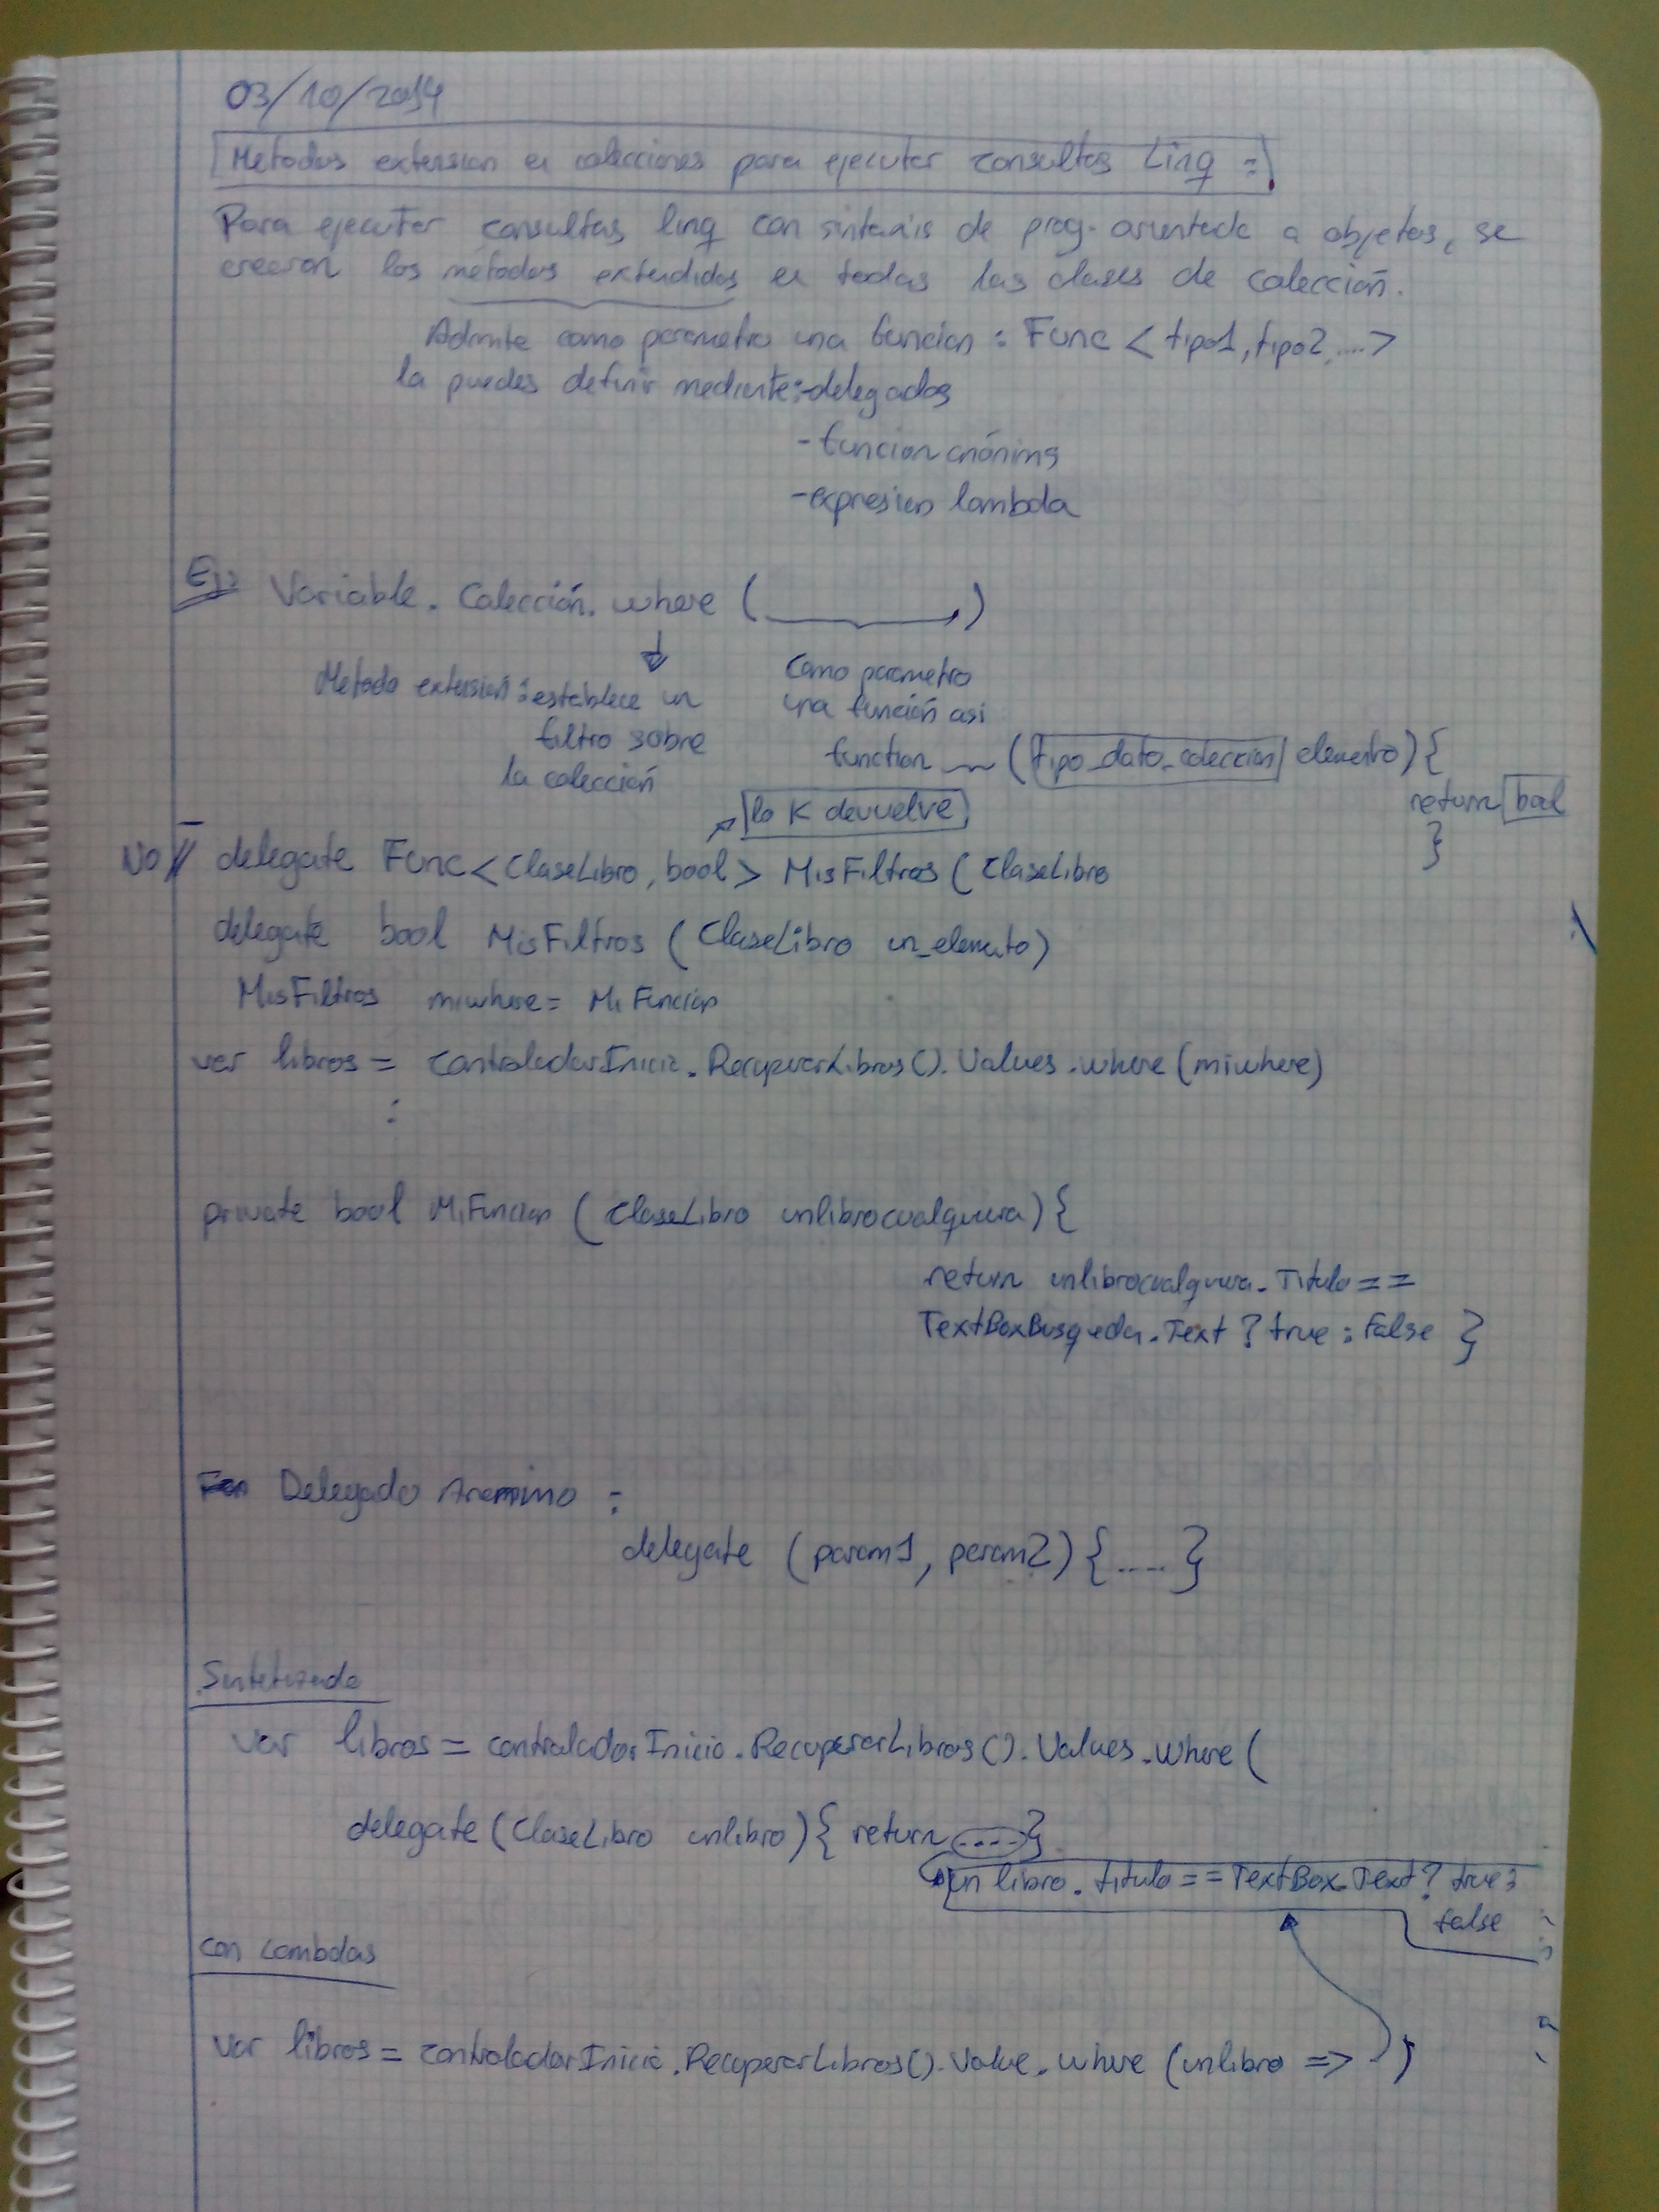 03/10/2014
Metodos extension en colecciones para ejecutar consultas Linq :
Para ejecutar consultas linq con sintaxis de prog. orientada a objetos, se
crearon los métodos extendidos en todas las clases de colección.
Admite como parametro una funcion : Func < tipo1, tipo2, ...>
la puedes definir mediante: - delegados
- funcion anónima
- expresion lambda
Ej: Variable . Colección. where ( )
Metodo extensión : establece un
filtro sobre
la colección
Como parametro
una función asi
function (tipo_dato_coleccion elemento) {
return bool
}
lo K devuelve
NO // delegate Func < ClaseLibro, bool > MisFiltros ( ClaseLibro
delegate bool MisFiltros ( ClaseLibro un_elemento)
MisFiltros miwhere = MiFuncion
var libros = controladorInicio.RecuperarLibros().Values.where (miwhere)
:
private bool MiFuncion ( ClaseLibro unlibrocualquiera) {
return unlibrocualquiera.Titulo ==
TextBoxBusqueda.Text ? true : false }
Delegado Anonimo :
delegate (param1, param2) { .... }
Sintetizado
var libros = controladorInicio.RecuperarLibros().Values.Where (
delegate (ClaseLibro unlibro) { return .... }
un libro.titulo == TextBox.Text ? true :
false
con Lambdas
var libros = controladorInicio.RecuperarLibros().Value.where (unlibro => )